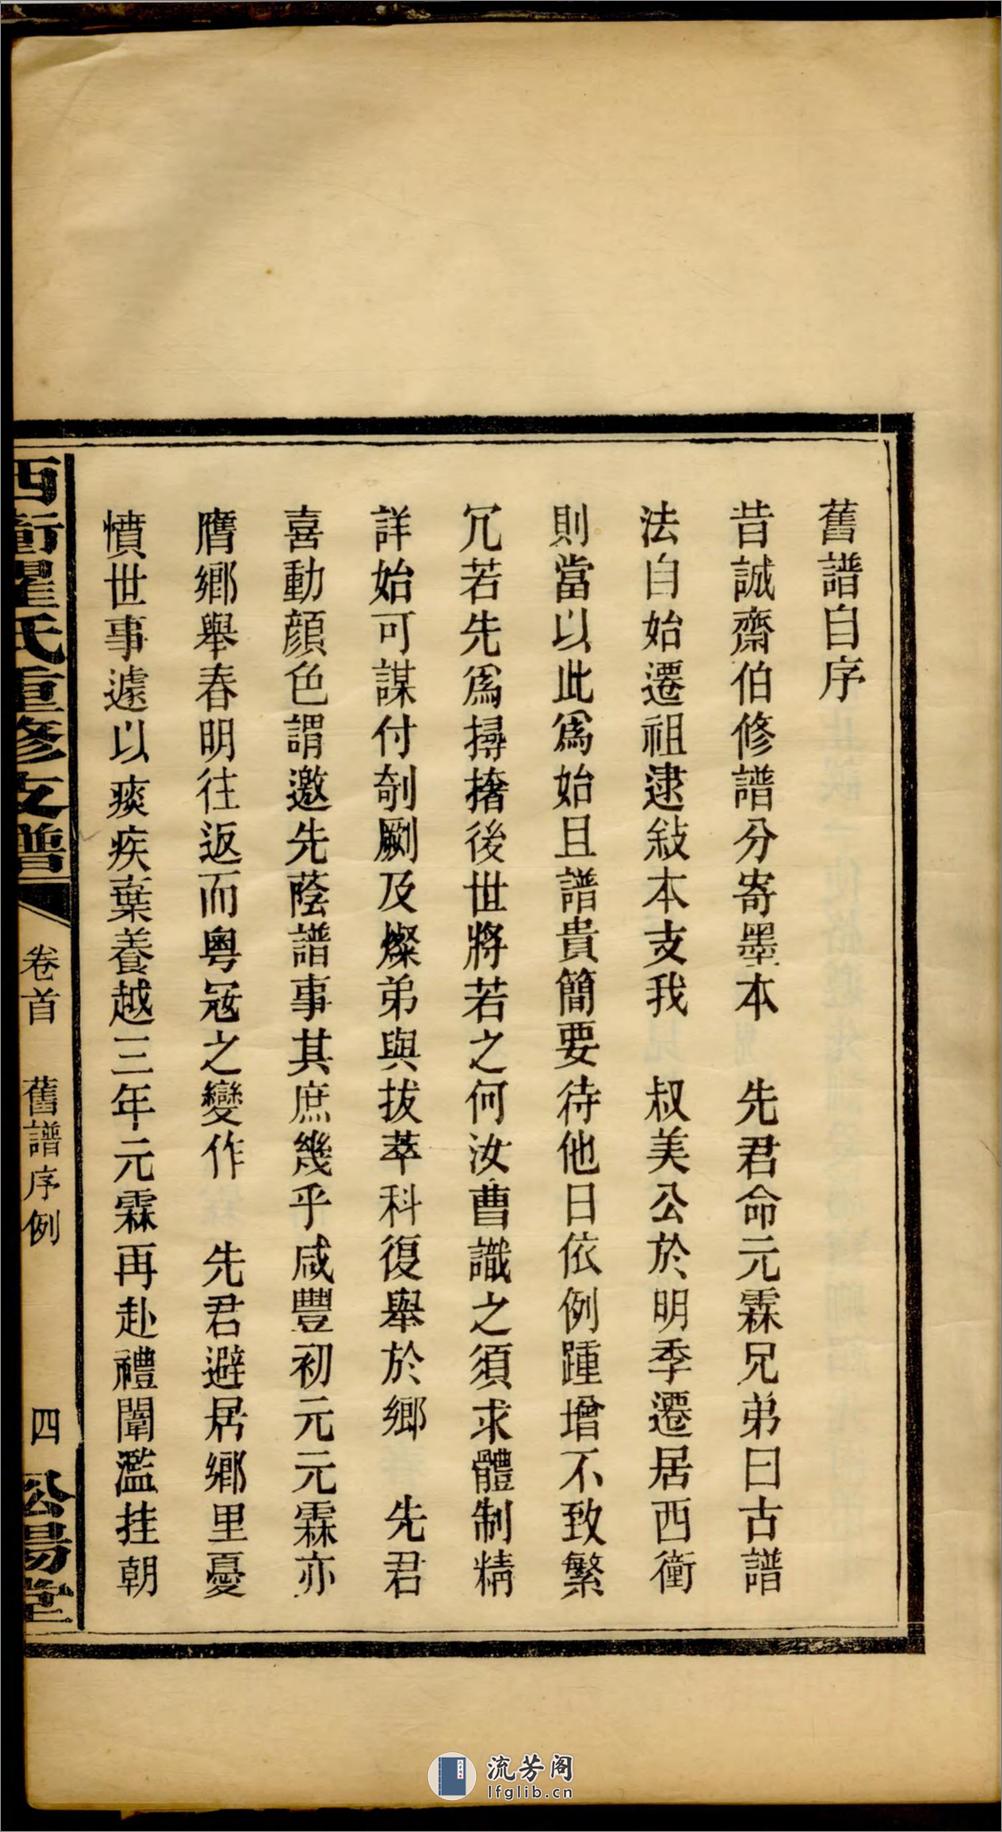 舊譜自序
昔誠齋伯修譜分寄墨本　先君命元霖兄弟曰古譜
法自始遷祖逮敍本支我　叔美公於明季遷居西衝
則當以此爲始且譜貴簡要待他日依例踵增不致繁
冗若先爲撏撦後世將若之何汝曹識之須求體制精
詳始可謀付剞劂及燦弟與拔萃科復舉於鄉　先君
喜動顔色謂邀先蔭譜事其庶幾乎咸豐初元元霖亦
膺鄉舉春明往返而粤冦之變作　先君避居鄉里憂
憤世事遽以痰疾棄養越三年元霖再赴禮闈濫挂朝
西衝瞿氏重修支譜
卷首　舊譜序例
四
松陽堂
流芳阁
lfglib.cn